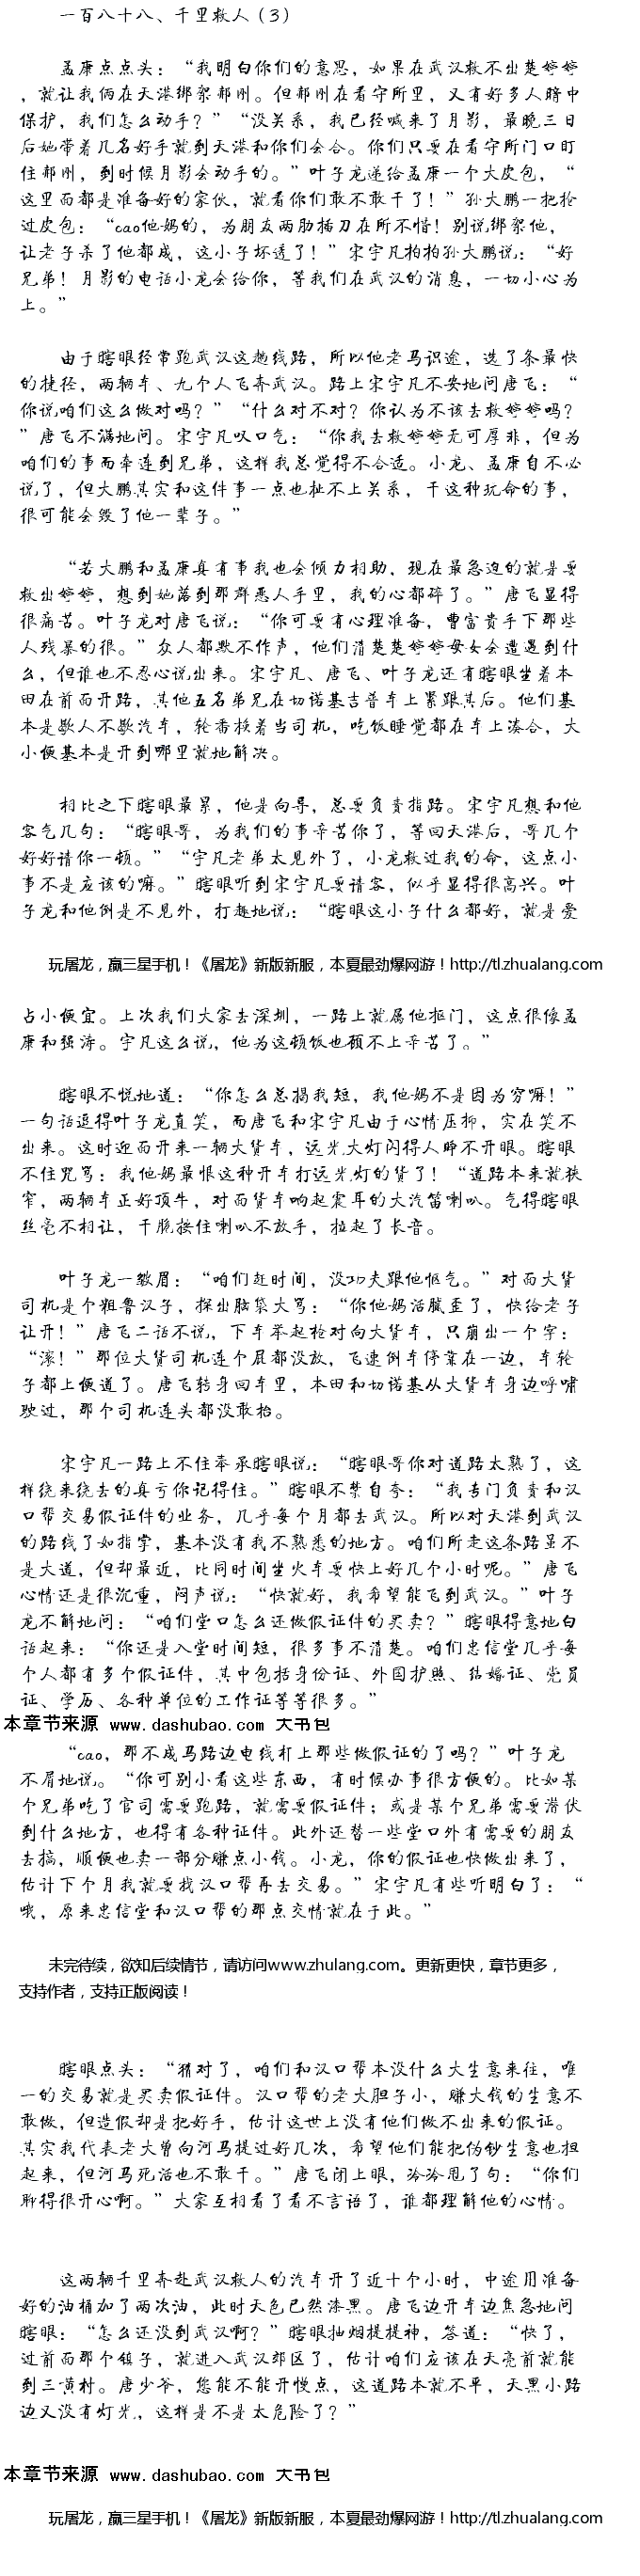 一百八十八、千里救人（3）
孟康点点头：“我明白你们的意思，如果在武汉救不出楚婷婷
，就让我俩在天港绑架郝刚。但郝刚在看守所里，又有好多人暗中
保护，我们怎么动手？”“没关系，我已经喊来了月影，最晚三日
后她带着几名好手就到天港和你们会合。你们只要在看守所门口盯
住郝刚，到时候月影会动手的。”叶子龙递给孟康一个大皮包，“
这里面都是准备好的家伙，就看你们敢不敢干了！”孙大鹏一把抢
过皮包：“cao他妈的，为朋友两肋插刀在所不惜！别说绑架他，
让老子杀了他都成，这小子坏透了！”宋宇凡拍拍孙大鹏说：“好
兄弟！月影的电话小龙会给你，等我们在武汉的消息，一切小心为
上。”
由于瞎眼经常跑武汉这趟线路，所以他老马识途，选了条最快
的捷径，两辆车、九个人飞奔武汉。路上宋宇凡不安地问唐飞：“
你说咱们这么做对吗？”“什么对不对？你认为不该去救婷婷吗？
”唐飞不满地问。宋宇凡叹口气：“你我去救婷婷无可厚非，但为
咱们的事而牵连到兄弟，这样我总觉得不合适。小龙、孟康自不必
说了，但大鹏其实和这件事一点也扯不上关系，干这种玩命的事，
很可能会毁了他一辈子。”
“若大鹏和孟康真有事我也会倾力相助，现在最急迫的就是要
救出婷婷，想到她落到那群恶人手里，我的心都碎了。”唐飞显得
很痛苦。叶子龙对唐飞说：“你可要有心理准备，曹富贵手下那些
人残暴的很。”众人都默不作声，他们清楚楚婷婷母女会遭遇到什
么，但谁也不忍心说出来。宋宇凡、唐飞、叶子龙还有瞎眼坐着本
田在前面开路，其他五名弟兄在切诺基吉普车上紧跟其后。他们基
本是歇人不歇汽车，轮番换着当司机，吃饭睡觉都在车上凑合，大
小便基本是开到哪里就地解决。
相比之下瞎眼最累，他是向导，总要负责指路。宋宇凡想和他
客气几句：“瞎眼哥，为我们的事辛苦你了，等回天港后，哥几个
好好请你一顿。”“宇凡老弟太见外了，小龙救过我的命，这点小
事不是应该的嘛。”瞎眼听到宋宇凡要请客，似乎显得很高兴。叶
子龙和他倒是不见外，打趣地说：“瞎眼这小子什么都好，就是爱
玩屠龙，赢三星手机！《屠龙》新版新服，本夏最劲爆网游！http://tl.zhualang.com
占小便宜。上次我们大家去深圳，一路上就属他抠门，这点很像孟
康和强涛。宇凡这么说，他为这顿饭也顾不上辛苦了。”
瞎眼不悦地道：“你怎么总揭我短，我他妈不是因为穷嘛！”
一句话逗得叶子龙直笑，而唐飞和宋宇凡由于心情压抑，实在笑不
出来。这时迎面开来一辆大货车，远光大灯闪得人睁不开眼。瞎眼
不住咒骂：我他妈最恨这种开车打远光灯的货了！“道路本来就狭
窄，两辆车正好顶牛，对面货车响起震耳的大汽笛喇叭。气得瞎眼
丝毫不相让，干脆按住喇叭不放手，拉起了长音。
叶子龙一皱眉：“咱们赶时间，没功夫跟他怄气。”对面大货
司机是个粗鲁汉子，探出脑袋大骂：“你他妈活腻歪了，快给老子
让开！”唐飞二话不说，下车举起枪对向大货车，只崩出一个字：
“滚！”那位大货司机连个屁都没放，飞速倒车停靠在一边，车轮
子都上便道了。唐飞转身回车里，本田和切诺基从大货车身边呼啸
驶过，那个司机连头都没敢抬。
宋宇凡一路上不住奉承瞎眼说：“瞎眼哥你对道路太熟了，这
样绕来绕去的真亏你记得住。”瞎眼不禁自夸：“我专门负责和汉
口帮交易假证件的业务，几乎每个月都去武汉。所以对天港到武汉
的路线了如指掌，基本没有我不熟悉的地方。咱们所走这条路虽不
是大道，但却最近，比同时间坐火车要快上好几个小时呢。”唐飞
心情还是很沉重，闷声说：“快就好，我希望能飞到武汉。”叶子
龙不解地问：“咱们堂口怎么还做假证件的买卖？”瞎眼得意地白
话起来：“你还是入堂时间短，很多事不清楚。咱们忠信堂几乎每
个人都有多个假证件，其中包括身份证、外国护照、结婚证、党员
证、学历、各种单位的工作证等等很多。”
本章节来源 www.dashubao.com 大书包
“cao，那不成马路边电线杆上那些做假证的了吗？”叶子龙
不屑地说。“你可别小看这些东西，有时候办事很方便的。比如某
个兄弟吃了官司需要跑路，就需要假证件；或是某个兄弟需要潜伏
到什么地方，也得有各种证件。此外还替一些堂口外有需要的朋友
去搞，顺便也卖一部分赚点小钱。小龙，你的假证也快做出来了，
估计下个月我就要找汉口帮再去交易。”宋宇凡有些听明白了：“
哦，原来忠信堂和汉口帮的那点交情就在于此。”
未完待续，欲知后续情节，请访问www.zhulang.com。更新更快，章节更多，
支持作者，支持正版阅读！
瞎眼点头：“猜对了，咱们和汉口帮本没什么大生意来往，唯
一的交易就是买卖假证件。汉口帮的老大胆子小，赚大钱的生意不
敢做，但造假却是把好手，估计这世上没有他们做不出来的假证。
其实我代表老大曾向河马提过好几次，希望他们能把伪钞生意也担
起来，但河马死活也不敢干。”唐飞闭上眼，冷冷甩了句：“你们
聊得很开心啊。”大家互相看了看不言语了，谁都理解他的心情。
这两辆千里奔赴武汉救人的汽车开了近十个小时，中途用准备
好的油桶加了两次油，此时天色已然漆黑。唐飞边开车边焦急地问
瞎眼：“怎么还没到武汉啊？”瞎眼抽烟提提神，答道：“快了，
过前面那个镇子，就进入武汉郊区了，估计咱们应该在天亮前就能
到三黄村。唐少爷，您能不能开慢点，这道路本就不平，天黑小路
边又没有灯光，这样是不是太危险了？”
本章节来源 www.dashubao.com 大书包
玩屠龙，赢三星手机！《屠龙》新版新服，本夏最劲爆网游！http://tl.zhualang.com